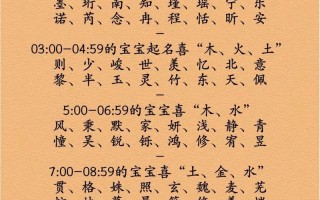 墨、珩、南、知、瑾、瑶、宁、乐
诺、芮、念、冉、程、恬、昕、安
03:00-04:59的宝宝起名喜“木、火、土”
则、少、峻、世、羡、忆、北、意
黎、半、玉、灵、竹、东、天、佩
5:00-06:59的宝宝喜“木、水”
风、秉、默、家、妍、浅、静、青
憧、吴、锐、铄、鸿、修、宥、昱
7:00-08:59的宝宝喜“土、金、水”
贯、格、姝、照、玄、魏、麦、芜